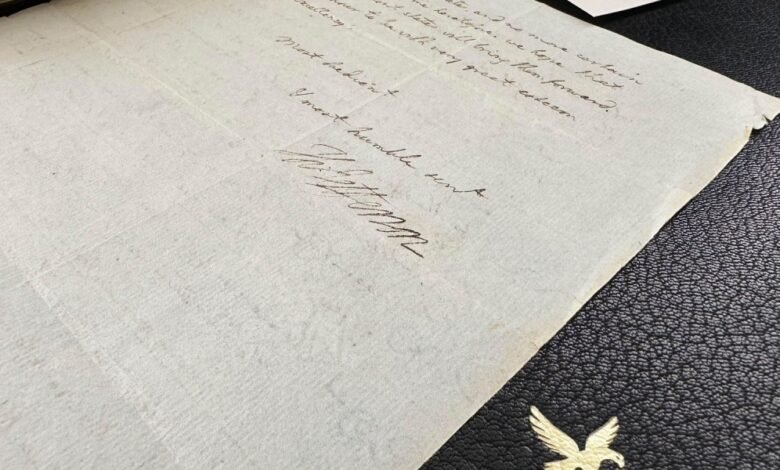 and no more certain
we hope that
will bring them forward.
to be with very great esteem
Most obedient
& most humble servt
Th: Jefferson